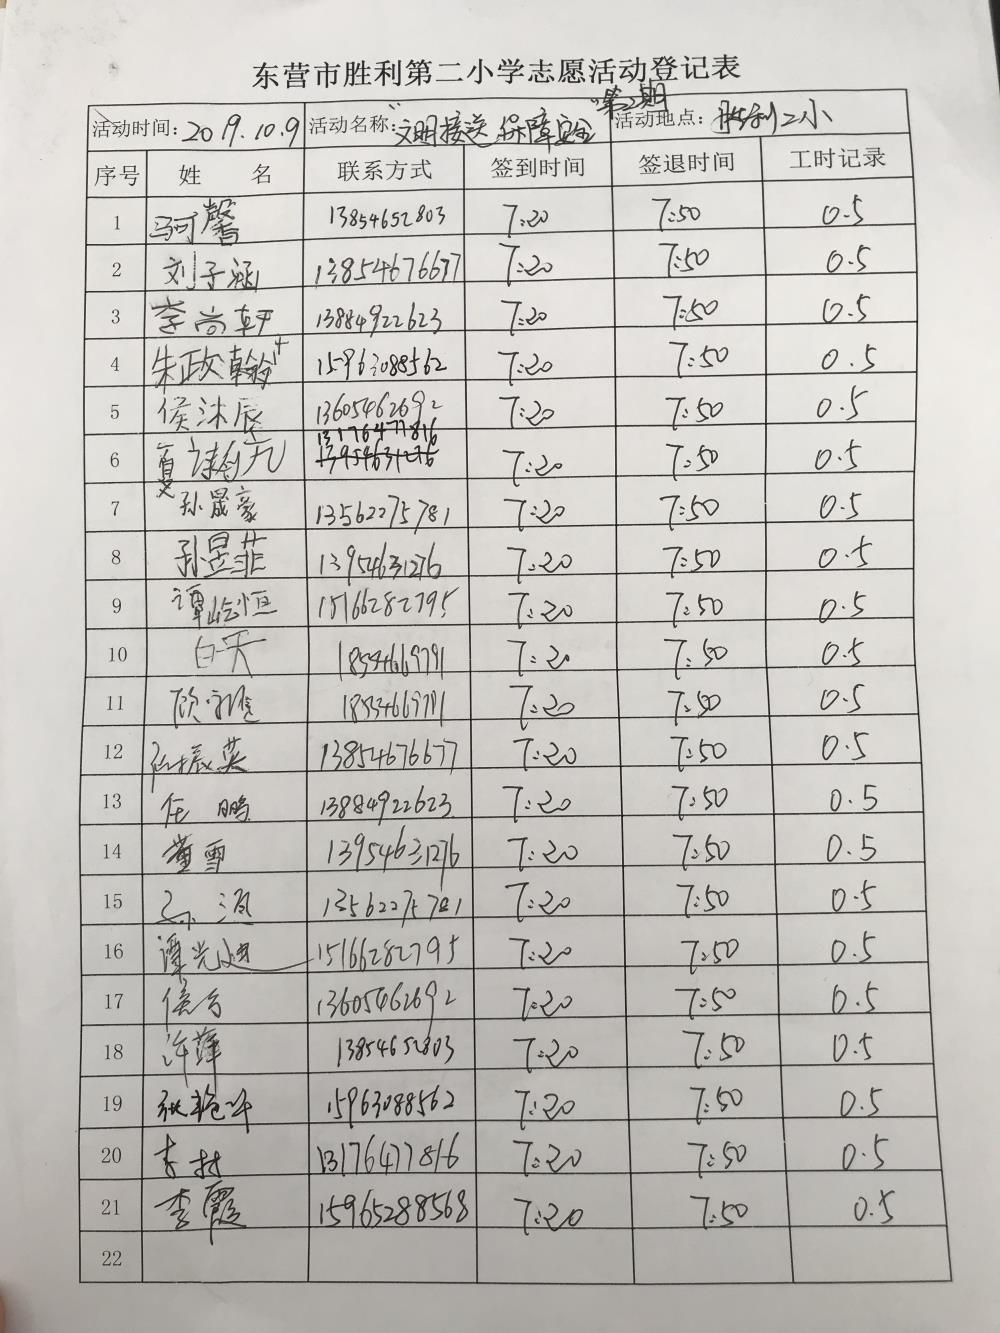 东营市胜利第二小学志愿活动登记表
第2期
活动时间：2019.10.9 活动名称："文明接送 保障安全" 活动地点：胜利二小
序号 姓 名 联系方式 签到时间 签退时间 工时记录
1 馨 13854652803 7:20 7:50 0.5
2 刘子涵 13854676677 7:20 7:50 0.5
3 李尚轩 13884922623 7:20 7:50 0.5
4 朱政翰 15963088562 7:20 7:50 0.5
5 侯沐辰 13605462692 7:20 7:50 0.5
13176477816
6 夏 13954631276 7:20 7:50 0.5
7 孙晟豪 13562275781 7:20 7:50 0.5
8 孙昱菲 13954631276 7:20 7:50 0.5
9 谭屹恒 15166282795 7:20 7:50 0.5
10 白天 18554669791 7:20 7:50 0.5
11 顾 18554669791 7:20 7:50 0.5
12 振英 13854676677 7:20 7:50 0.5
13 任鹏 13884922623 7:20 7:50 0.5
14 董雪 13954631276 7:20 7:50 0.5
15 13562275781 7:20 7:50 0.5
16 谭光 15166282795 7:20 7:50 0.5
17 侯 13605462692 7:20 7:50 0.5
18 许萍 13854652803 7:20 7:50 0.5
19 15963088562 7:20 7:50 0.5
20 13176477816 7:20 7:50 0.5
21 李霞 15965288568 7:20 7:50 0.5
22